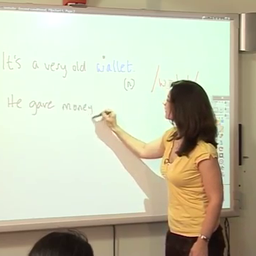 It's a very old wallet.
(n)
He gave money